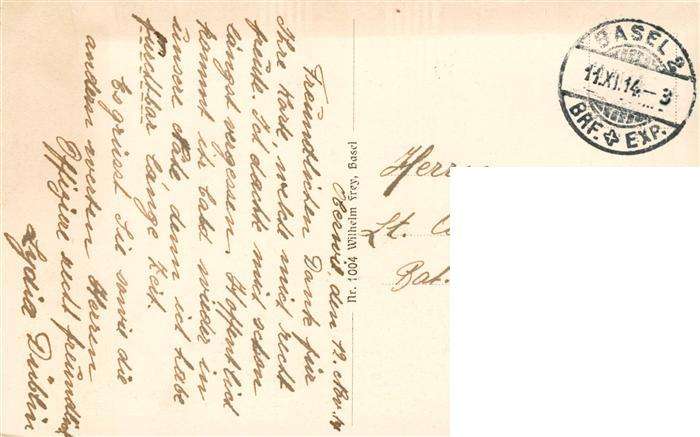 Oberwil, den 12. Nov. 14
Freundlichen Dank für
Ihre Karte, welche mich recht
freute. Ich dachte mich schon
längst vergessen. Hoffentlich
kommt ihr bald wieder in
unsere Nähe, denn ich habe
furchtbar lange Zeit.
Es grüsst Sie sowie die
andern werten Herren
Offiziere recht freundlich
Lydia Düblin
Nr. 1004 Wilhelm Frey, Basel
BASEL 2
11.XI.14-3
BRF. EXP.
Herrn
Lt.
Bat.